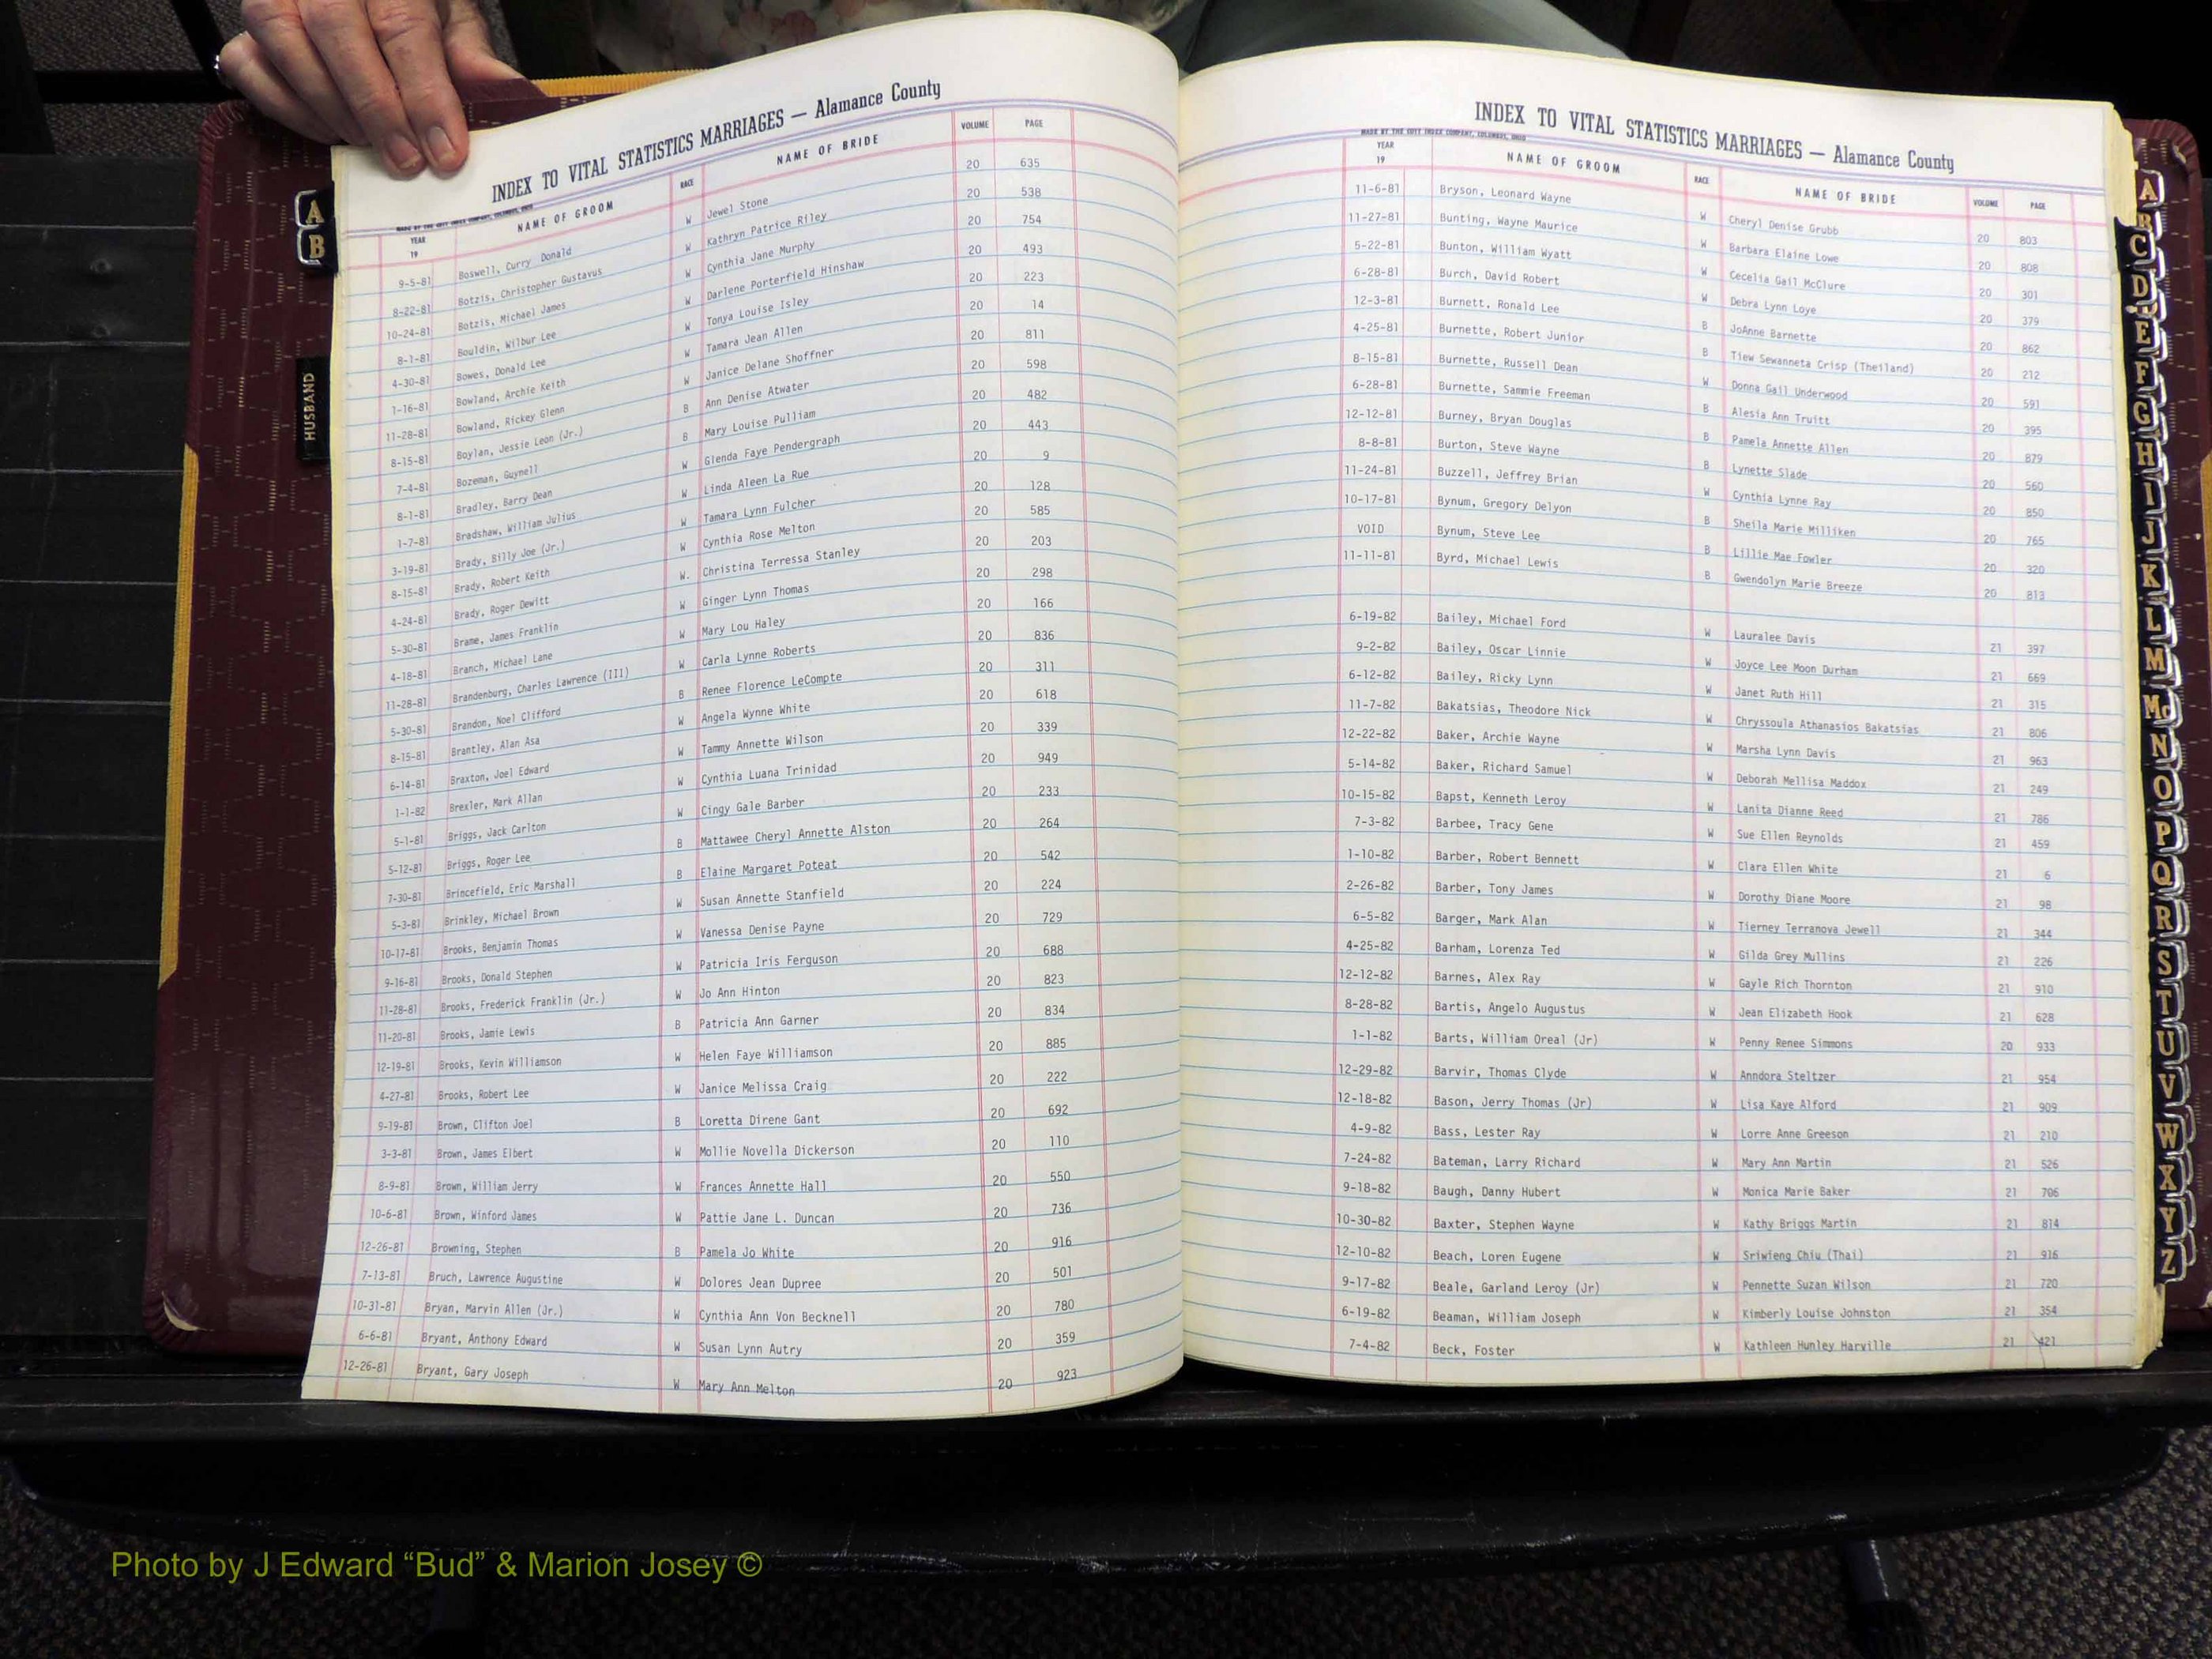 INDEX TO VITAL STATISTICS MARRIAGES — Alamance County
YEAR 19 NAME OF GROOM RACE NAME OF BRIDE VOLUME PAGE
9-5-81 Boswell, Curry Donald W Jewel Stone 20 635
8-22-81 Botzis, Christopher Gustavus W Kathryn Patrice Riley 20 538
10-24-81 Botzis, Michael James W Cynthia Jane Murphy 20 754
8-1-81 Bouldin, Wilbur Lee W Darlene Porterfield Hinshaw 20 493
4-30-81 Bowes, Donald Lee W Tonya Louise Isley 20 223
1-16-81 Bowland, Archie Keith W Tamara Jean Allen 20 14
11-28-81 Bowland, Rickey Glenn W Janice Delane Shoffner 20 811
8-15-81 Boylan, Jessie Leon (Jr.) B Ann Denise Atwater 20 598
7-4-81 Bozeman, Guynell B Mary Louise Pulliam 20 482
8-1-81 Bradley, Barry Dean W Glenda Faye Pendergraph 20 443
1-7-81 Bradshaw, William Julius W Linda Aleen La Rue 20 9
3-19-81 Brady, Billy Joe (Jr.) W Tamara Lynn Fulcher 20 128
8-15-81 Brady, Robert Keith W Cynthia Rose Melton 20 585
4-24-81 Brady, Roger Dewitt W. Christina Terressa Stanley 20 203
5-30-81 Brame, James Franklin W Ginger Lynn Thomas 20 298
4-18-81 Branch, Michael Lane W Mary Lou Haley 20 166
11-28-81 Brandenburg, Charles Lawrence (III) W Carla Lynne Roberts 20 836
5-30-81 Brandon, Noel Clifford B Renee Florence LeCompte 20 311
8-15-81 Brantley, Alan Asa W Angela Wynne White 20 618
6-14-81 Braxton, Joel Edward W Tammy Annette Wilson 20 339
1-1-82 Brexler, Mark Allan W Cynthia Luana Trinidad 20 949
5-1-81 Briggs, Jack Carlton W Cingy Gale Barber 20 233
5-12-81 Briggs, Roger Lee B Mattawee Cheryl Annette Alston 20 264
7-30-81 Brincefield, Eric Marshall B Elaine Margaret Poteat 20 542
5-3-81 Brinkley, Michael Brown W Susan Annette Stanfield 20 224
10-17-81 Brooks, Benjamin Thomas W Vanessa Denise Payne 20 729
9-16-81 Brooks, Donald Stephen W Patricia Iris Ferguson 20 688
11-28-81 Brooks, Frederick Franklin (Jr.) W Jo Ann Hinton 20 823
11-20-81 Brooks, Jamie Lewis B Patricia Ann Garner 20 834
12-19-81 Brooks, Kevin Williamson W Helen Faye Williamson 20 885
4-27-81 Brooks, Robert Lee W Janice Melissa Craig 20 222
9-19-81 Brown, Clifton Joel B Loretta Direne Gant 20 692
3-3-81 Brown, James Elbert W Mollie Novella Dickerson 20 110
8-9-81 Brown, William Jerry W Frances Annette Hall 20 550
10-6-81 Brown, Winford James W Pattie Jane L. Duncan 20 736
12-26-81 Browning, Stephen B Pamela Jo White 20 916
7-13-81 Bruch, Lawrence Augustine W Dolores Jean Dupree 20 501
10-31-81 Bryan, Marvin Allen (Jr.) W Cynthia Ann Von Becknell 20 780
6-6-81 Bryant, Anthony Edward W Susan Lynn Autry 20 359
12-26-81 Bryant, Gary Joseph W Mary Ann Melton 20 923
A
B
HUSBAND
INDEX TO VITAL STATISTICS MARRIAGES — Alamance County
MADE BY THE COTT INDEX COMPANY, COLUMBUS, OHIO
YEAR 19 NAME OF GROOM RACE NAME OF BRIDE VOLUME PAGE
11-6-81 Bryson, Leonard Wayne W Cheryl Denise Grubb 20 803
11-27-81 Bunting, Wayne Maurice W Barbara Elaine Lowe 20 808
5-22-81 Bunton, William Wyatt W Cecelia Gail McClure 20 301
6-28-81 Burch, David Robert W Debra Lynn Loye 20 379
12-3-81 Burnett, Ronald Lee B JoAnne Barnette 20 862
4-25-81 Burnette, Robert Junior B Tiew Sewanneta Crisp (Theiland) 20 212
8-15-81 Burnette, Russell Dean W Donna Gail Underwood 20 591
6-28-81 Burnette, Sammie Freeman B Alesia Ann Truitt 20 395
12-12-81 Burney, Bryan Douglas B Pamela Annette Allen 20 879
8-8-81 Burton, Steve Wayne B Lynette Slade 20 560
11-24-81 Buzzell, Jeffrey Brian W Cynthia Lynne Ray 20 850
10-17-81 Bynum, Gregory Delyon B Sheila Marie Milliken 20 765
VOID Bynum, Steve Lee B Lillie Mae Fowler 20 320
11-11-81 Byrd, Michael Lewis B Gwendolyn Marie Breeze 20 813
6-19-82 Bailey, Michael Ford W Lauralee Davis 21 397
9-2-82 Bailey, Oscar Linnie W Joyce Lee Moon Durham 21 669
6-12-82 Bailey, Ricky Lynn W Janet Ruth Hill 21 315
11-7-82 Bakatsias, Theodore Nick W Chryssoula Athanasios Bakatsias 21 806
12-22-82 Baker, Archie Wayne W Marsha Lynn Davis 21 963
5-14-82 Baker, Richard Samuel W Deborah Mellisa Maddox 21 249
10-15-82 Bapst, Kenneth Leroy W Lanita Dianne Reed 21 786
7-3-82 Barbee, Tracy Gene W Sue Ellen Reynolds 21 459
1-10-82 Barber, Robert Bennett W Clara Ellen White 21 6
2-26-82 Barber, Tony James W Dorothy Diane Moore 21 98
6-5-82 Barger, Mark Alan W Tierney Terranova Jewell 21 344
4-25-82 Barham, Lorenza Ted W Gilda Grey Mullins 21 226
12-12-82 Barnes, Alex Ray W Gayle Rich Thornton 21 910
8-28-82 Bartis, Angelo Augustus W Jean Elizabeth Hook 21 628
1-1-82 Barts, William Oreal (Jr) W Penny Renee Simmons 20 933
12-29-82 Barvir, Thomas Clyde W Anndora Steltzer 21 954
12-18-82 Bason, Jerry Thomas (Jr) W Lisa Kaye Alford 21 909
4-9-82 Bass, Lester Ray W Lorre Anne Greeson 21 210
7-24-82 Bateman, Larry Richard W Mary Ann Martin 21 526
9-18-82 Baugh, Danny Hubert W Monica Marie Baker 21 706
10-30-82 Baxter, Stephen Wayne W Kathy Briggs Martin 21 814
12-10-82 Beach, Loren Eugene W Sriwieng Chiu (Thai) 21 916
9-17-82 Beale, Garland Leroy (Jr) W Pennette Suzan Wilson 21 720
6-19-82 Beaman, William Joseph W Kimberly Louise Johnston 21 354
7-4-82 Beck, Foster W Kathleen Hunley Harville 21 421
A
B
C
D
E
F
G
H
I
J
K
L
M
Mc
N
O
P
Q
R
S
T
U
V
W
X
Y
Z
Photo by J Edward “Bud” & Marion Josey ©